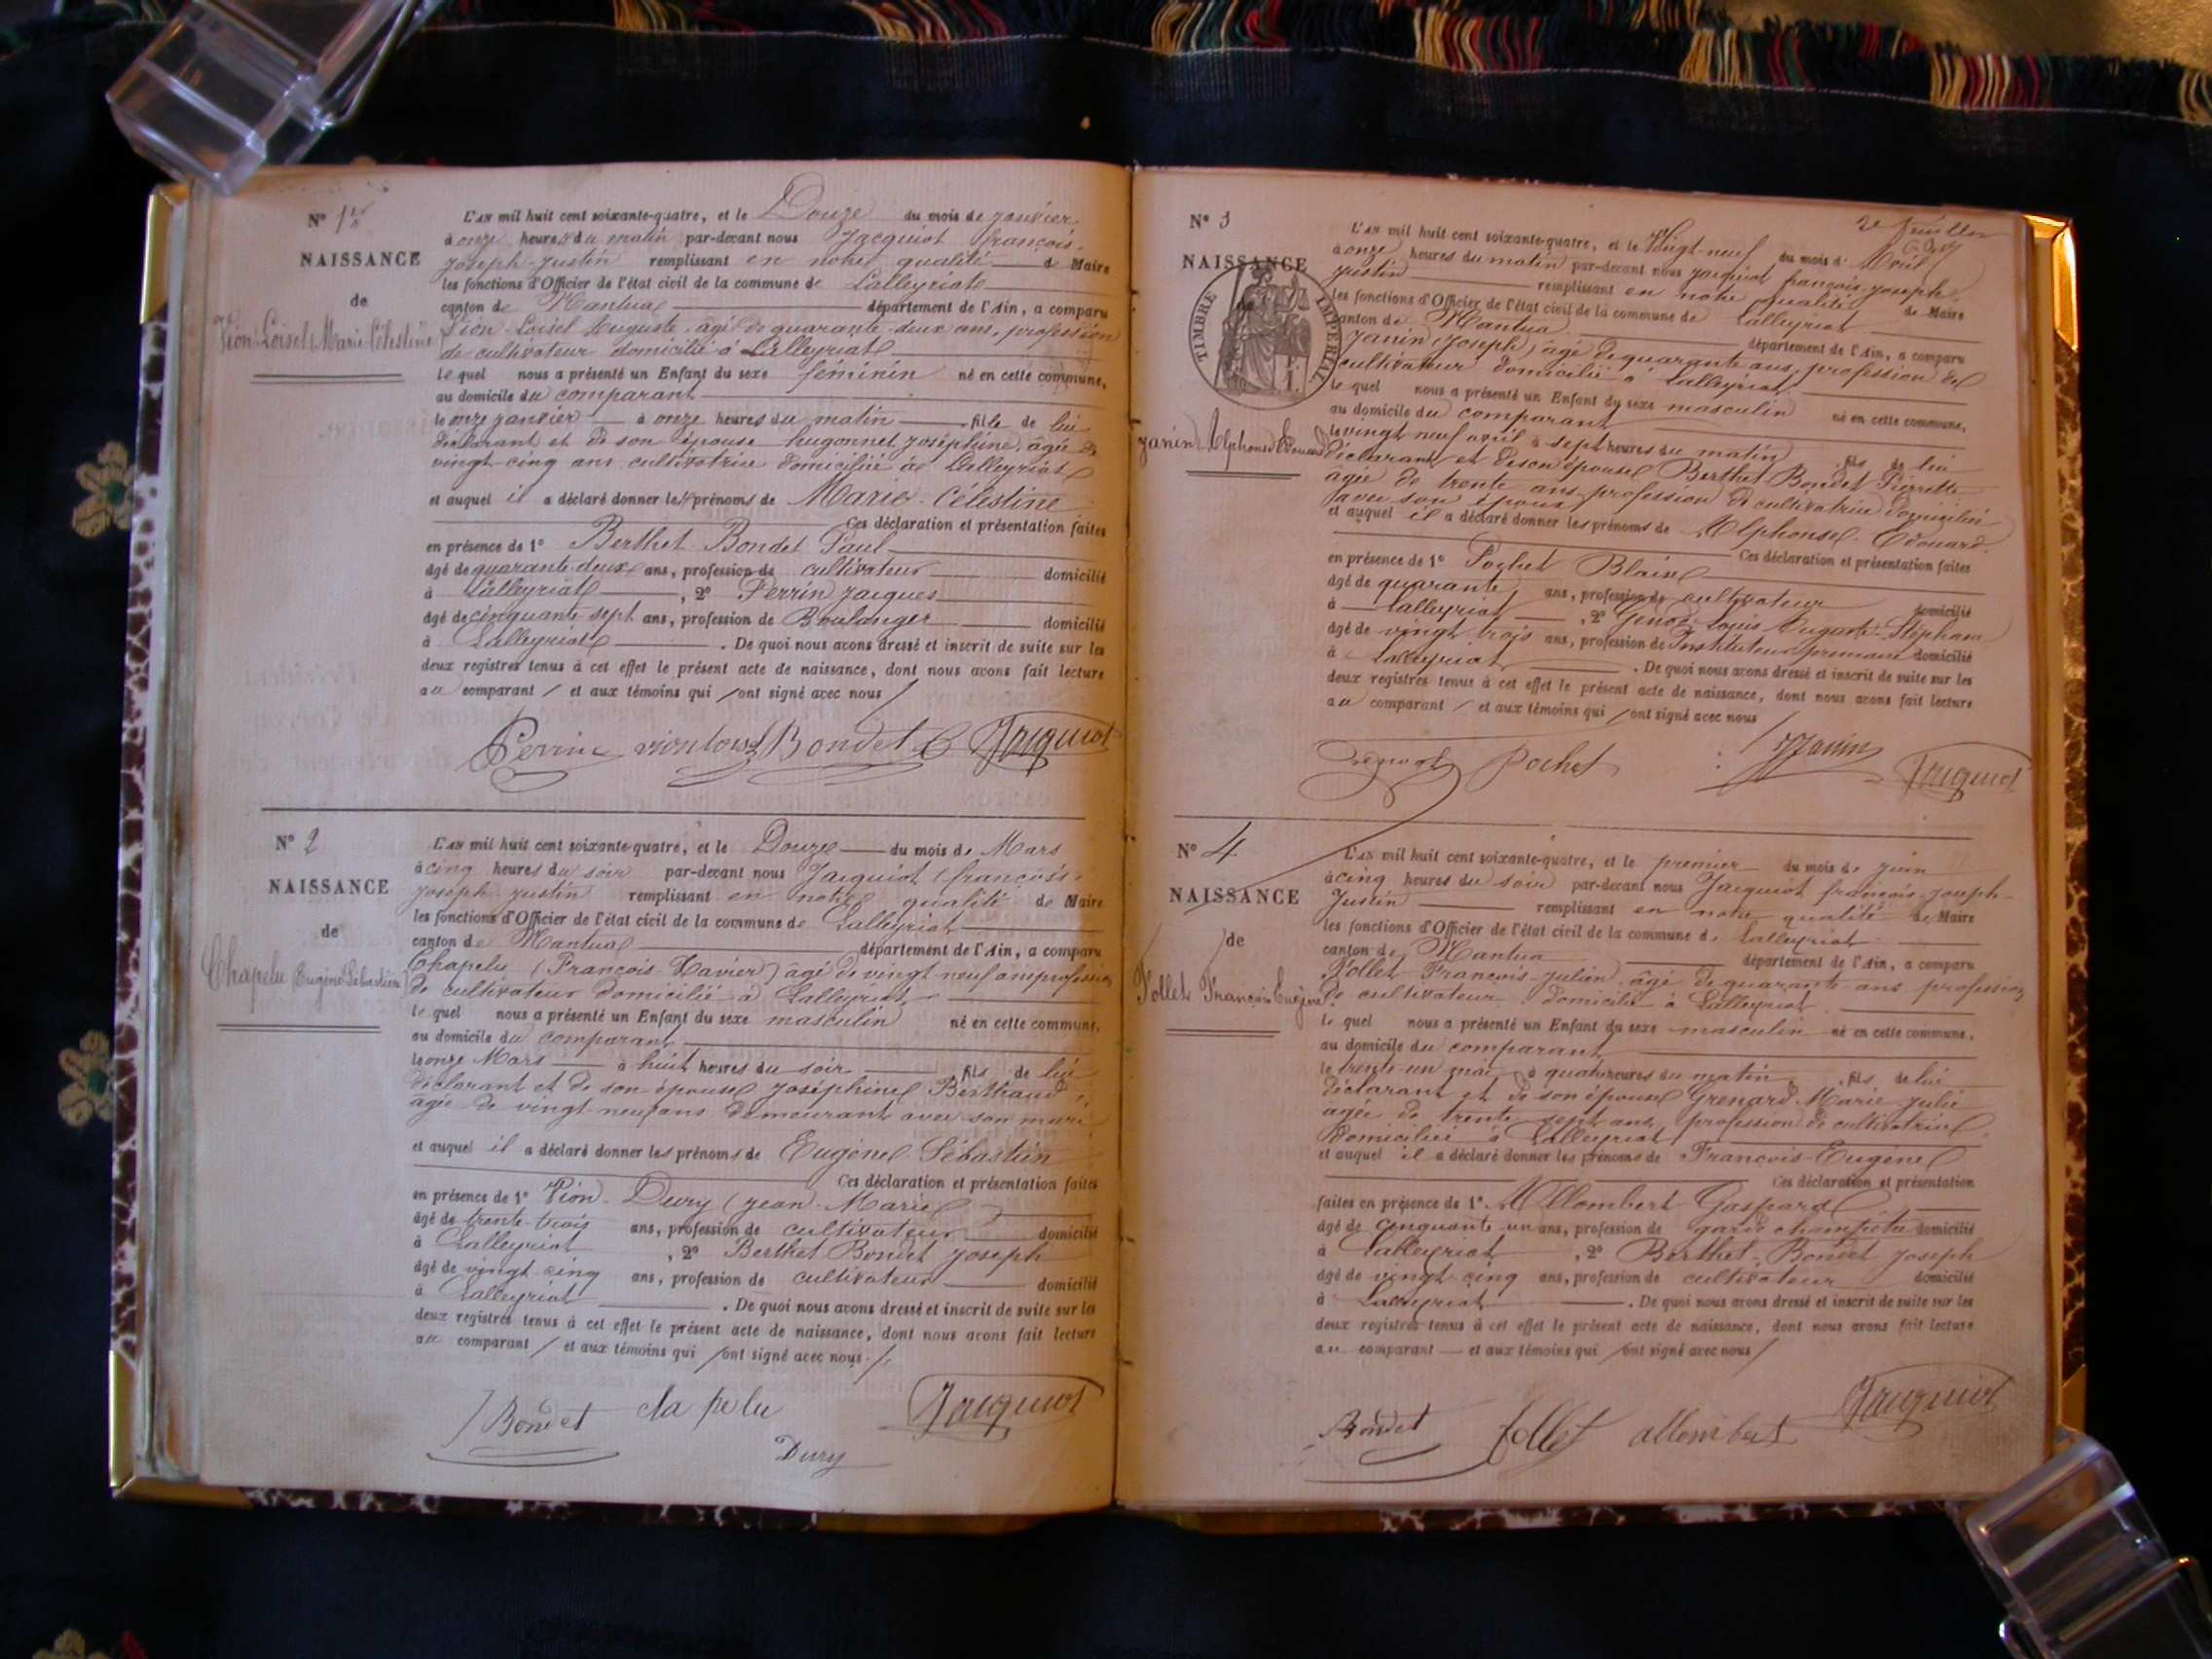 N° 1er
NAISSANCE
de
Vion-Loisel Marie-Célestine
L'AN mil huit cent soixante-quatre, et le Douze du mois de janvier
à onze heures du matin par-devant nous Jacquiot françois-
joseph-justin remplissant en notre qualité de Maire
les fonctions d'Officier de l'état civil de la commune de Lalleyriat
canton de Nantua département de l'Ain, a comparu
Vion-Loisel Auguste âgé de quarante-deux ans, profession
de cultivateur domicilié à Lalleyriat
lequel nous a présenté un Enfant du sexe féminin né en cette commune,
au domicile du comparant
le onze janvier à onze heures du matin fille de lui
déclarant et de son épouse hugonnet joséphine, âgée de
vingt-cinq ans cultivatrice domiciliée à Lalleyriat
et auquel il a déclaré donner les prénoms de Marie-Célestine
Ces déclaration et présentation faites
en présence de 1° Berthet-Bondet Paul
âgé de quarante deux ans, profession de cultivateur domicilié
à Lalleyriat, 2° Perrin jacques
âgé de cinquante-sept ans, profession de Boulanger domicilié
à Lalleyriat. De quoi nous avons dressé et inscrit de suite sur les
deux registres tenus à cet effet le présent acte de naissance, dont nous avons fait lecture
au comparant / et aux témoins qui / ont signé avec nous /
Perrin vion loisel Bondet Jacquiot
N° 2
NAISSANCE
de
Chapelu Eugène Sébastien
L'AN mil huit cent soixante-quatre, et le Douze du mois de Mars
à cinq heures du soir par-devant nous Jacquiot (françois-
joseph-justin remplissant en notre qualité de Maire
les fonctions d'Officier de l'état civil de la commune de Lalleyriat
canton de Nantua département de l'Ain, a comparu
Chapelu (François-Xavier) âgé de vingt-neuf ans profession
de cultivateur domicilié à Lalleyriat
lequel nous a présenté un Enfant du sexe masculin né en cette commune,
au domicile du comparant
le onze Mars à huit heures du soir fils de lui
déclarant et de son épouse joséphine Berthaud,
âgée de vingt neuf ans demeurant avec son mari
et auquel il a déclaré donner les prénoms de Eugène Sébastien
Ces déclaration et présentation faites
en présence de 1° Vion-Dury (jean-Marie)
âgé de trente-trois ans, profession de cultivateur domicilié
à Lalleyriat, 2° Berthet Bondet joseph
âgé de vingt cinq ans, profession de cultivateur domicilié
à Lalleyriat. De quoi nous avons dressé et inscrit de suite sur les
deux registres tenus à cet effet le présent acte de naissance, dont nous avons fait lecture
au comparant / et aux témoins qui / ont signé avec nous. /
J Bondet chapelu Jacquiot
Dury
2e feuillet
N° 3
NAISSANCE
TIMBRE IMPERIAL
Janin Alphonse Edouard
L'AN mil huit cent soixante-quatre, et le Vingt-neuf du mois d'Avril
à onze heures du matin par-devant nous jacquiot françois-joseph-
justin remplissant en notre qualité de Maire
les fonctions d'Officier de l'état civil de la commune de Lalleyriat
canton de Nantua département de l'Ain, a comparu
Janin (Joseph) âgé de quarante ans, profession de
cultivateur domicilié à Lalleyriat
lequel nous a présenté un Enfant du sexe masculin né en cette commune,
au domicile du comparant
le vingt neuf avril à sept heures du matin fils de lui
déclarant et de son épouse Berthet Bondet Pierrette
âgée de trente ans profession de cultivatrice domiciliée
avec son époux
et auquel il a déclaré donner les prénoms de Alphonse-Edouard.
Ces déclaration et présentation faites
en présence de 1° Pochet Blaise
âgé de quarante ans, profession de cultivateur domicilié
à Lalleyriat, 2° Genod Louis Auguste Stéphane
âgé de vingt trois ans, profession de Instituteur primaire domicilié
à Lalleyriat. De quoi nous avons dressé et inscrit de suite sur les
deux registres tenus à cet effet le présent acte de naissance, dont nous avons fait lecture
au comparant / et aux témoins qui / ont signé avec nous
Genod Pochet Janin Jacquiot
N° 4
NAISSANCE
de
Follet François Eugène
L'AN mil huit cent soixante-quatre, et le premier du mois de juin
à cinq heures du soir par-devant nous Jacquiot françois-joseph-
Justin remplissant en notre qualité de Maire
les fonctions d'Officier de l'état civil de la commune de Lalleyriat
canton de Nantua département de l'Ain, a comparu
Follet François-Julien âgé de quarante ans profession
de cultivateur domicilié à Lalleyriat
lequel nous a présenté un Enfant du sexe masculin né en cette commune,
au domicile du comparant
le trente-un mai à quatre heures du matin fils de lui
déclarant et de son épouse Grenard Marie-julie
âgée de trente-sept ans, profession de cultivatrice
domiciliée à Lalleyriat
et auquel il a déclaré donner les prénoms de François-Eugène
Ces déclaration et présentation
faites en présence de 1° Allombert Gaspard
âgé de cinquante-un ans, profession de garde champêtre domicilié
à Lalleyriat, 2° Berthet-Bondet joseph
âgé de vingt cinq ans, profession de cultivateur domicilié
à Lalleyriat. De quoi nous avons dressé et inscrit de suite sur les
deux registres tenus à cet effet le présent acte de naissance, dont nous avons fait lecture
au comparant — et aux témoins qui / ont signé avec nous /
Bondet follet allombert Jacquiot